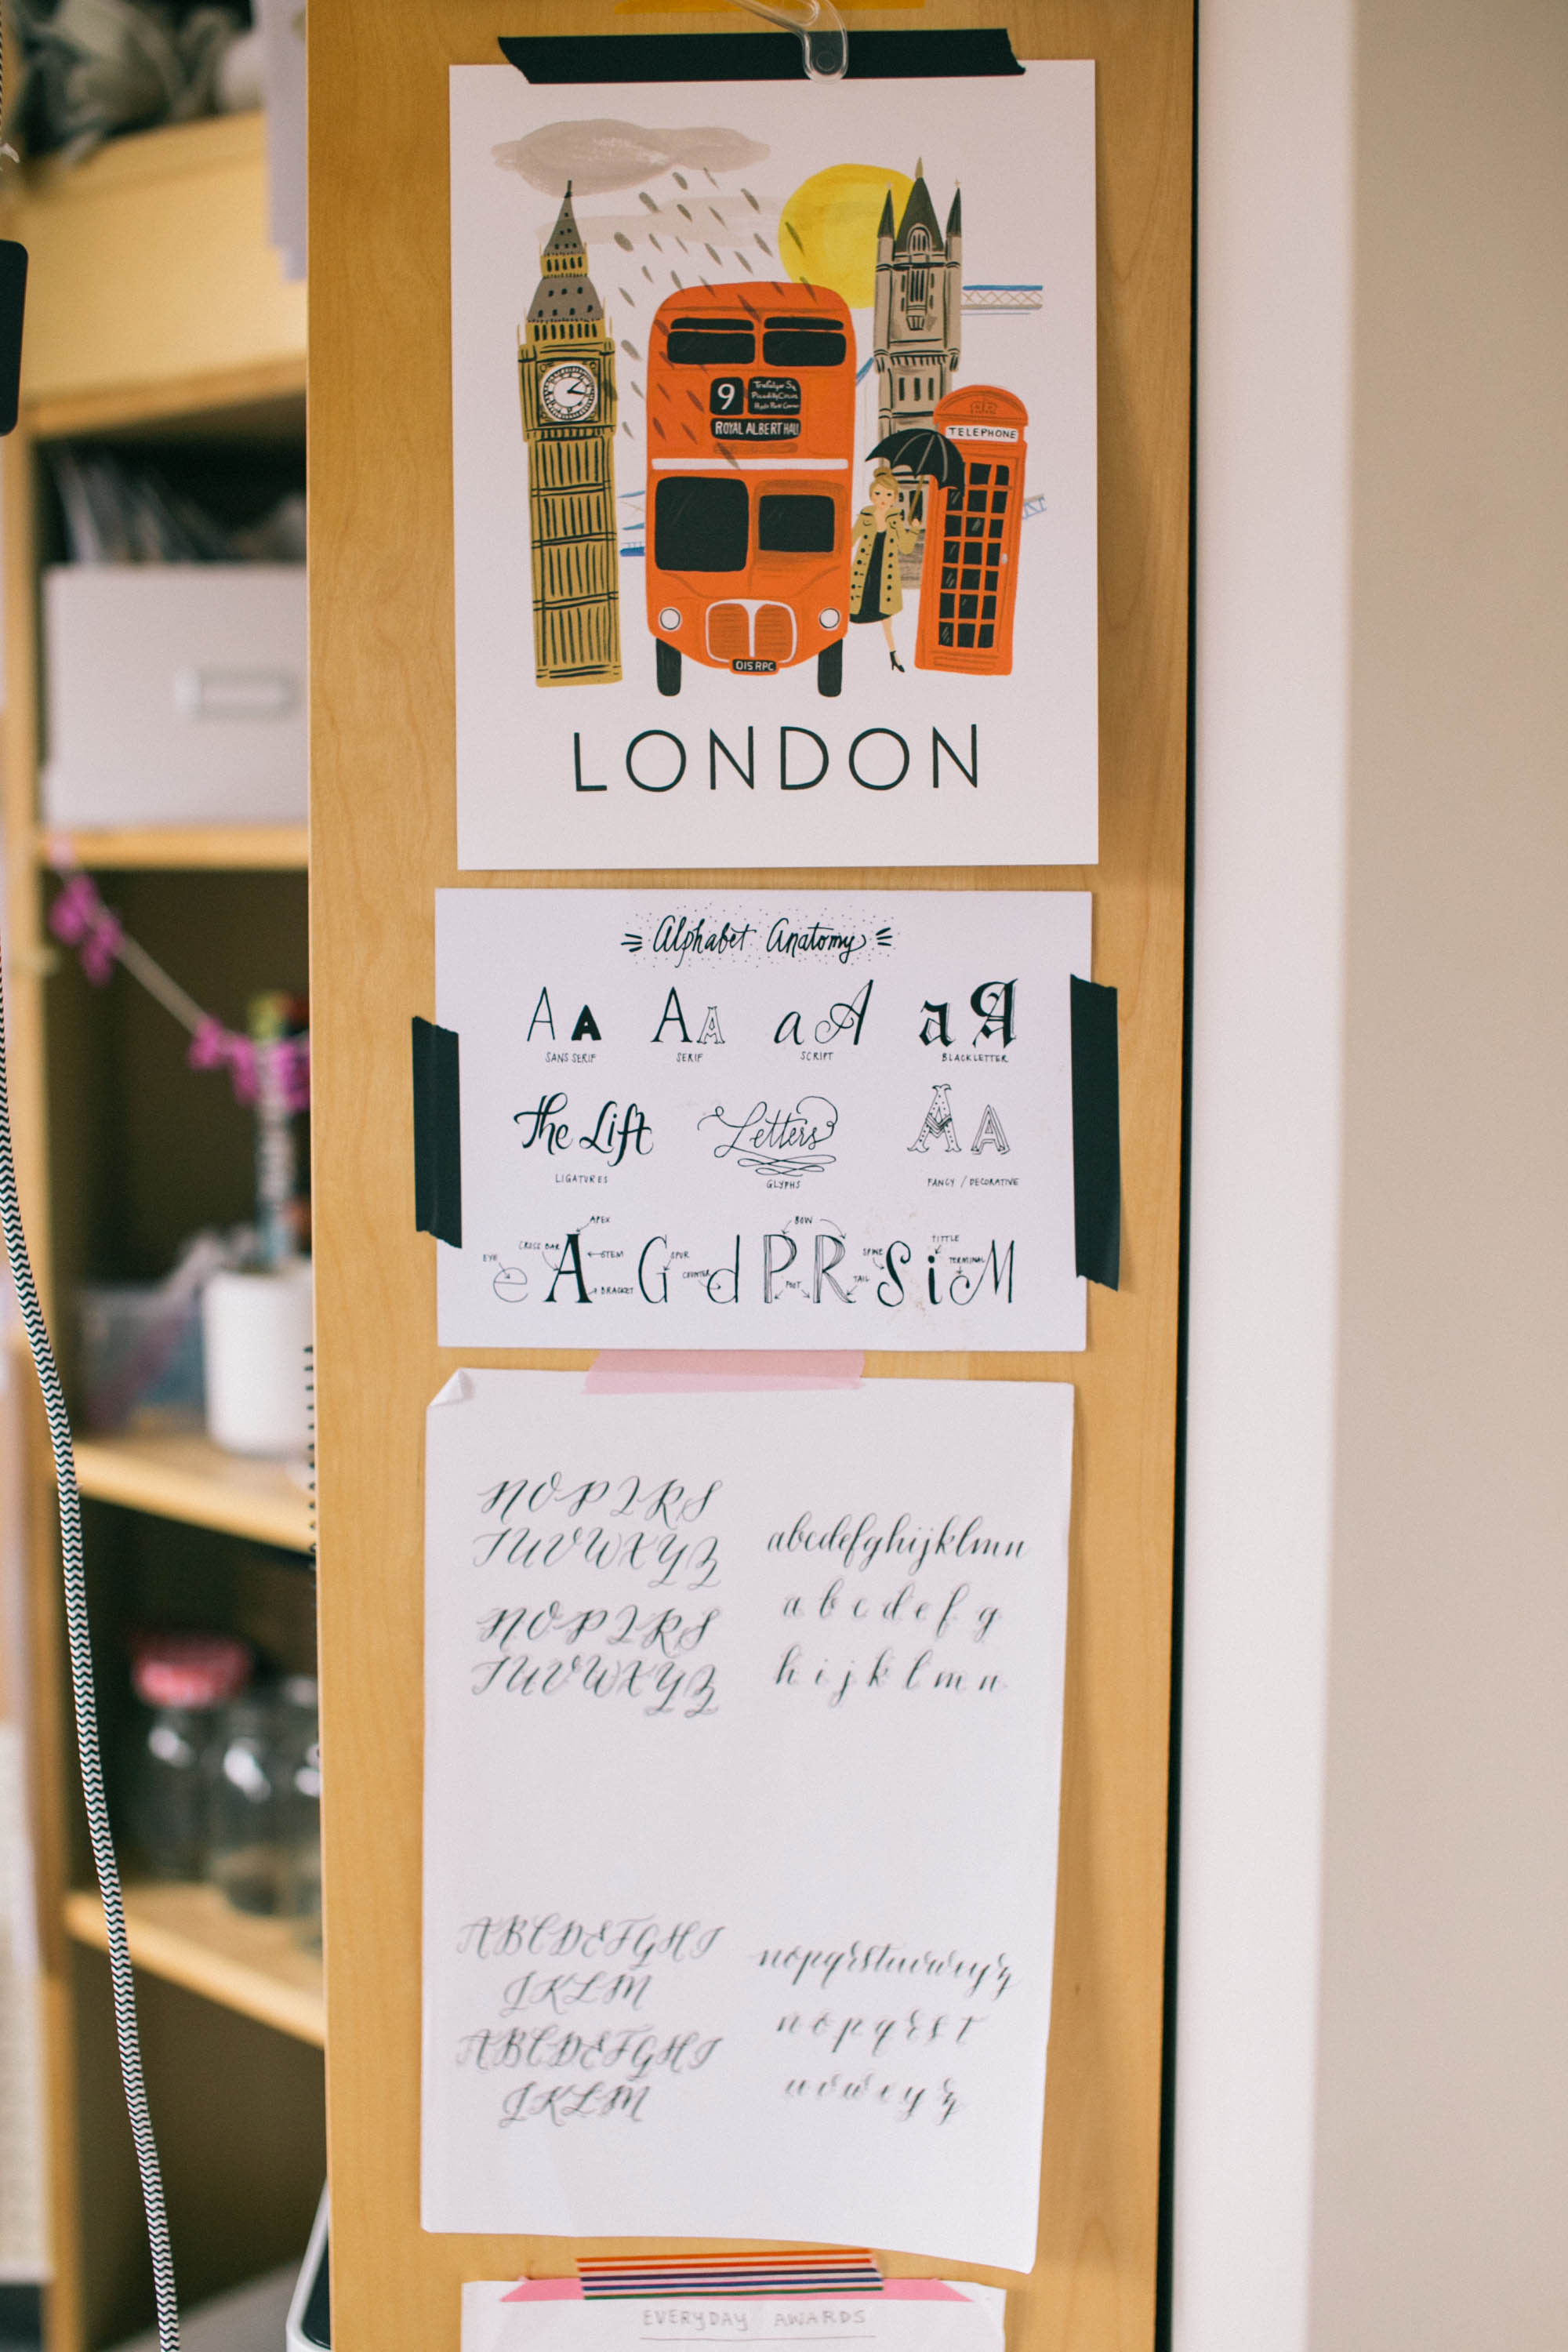 9
Trafalgar Sq
Piccadilly Circus
Hyde Park Corner
ROYAL ALBERT HALL
TELEPHONE
015 RPC
LONDON
Alphabet Anatomy
A A A A a A a A
SANS SERIF SERIF SCRIPT BLACKLETTER
The Lift Letters A A
LIGATURES GLYPHS FANCY / DECORATIVE
APEX BOW
EYE CROSS BAR STEM SPUR COUNTER SPINE TITTLE TERMINAL
e A G d P R S i M
BRACKET FOOT TAIL
NOPQRS
TUVWXYZ
NOPQRS
TUVWXYZ
abcdefghijklmn
a b c d e f g
h i j k l m n
ABCDEFGHI
JKLM
ABCDEFGHI
JKLM
nopqrstuvwxyz
n o p q r s t
u v w x y z
EVERYDAY AWARDS